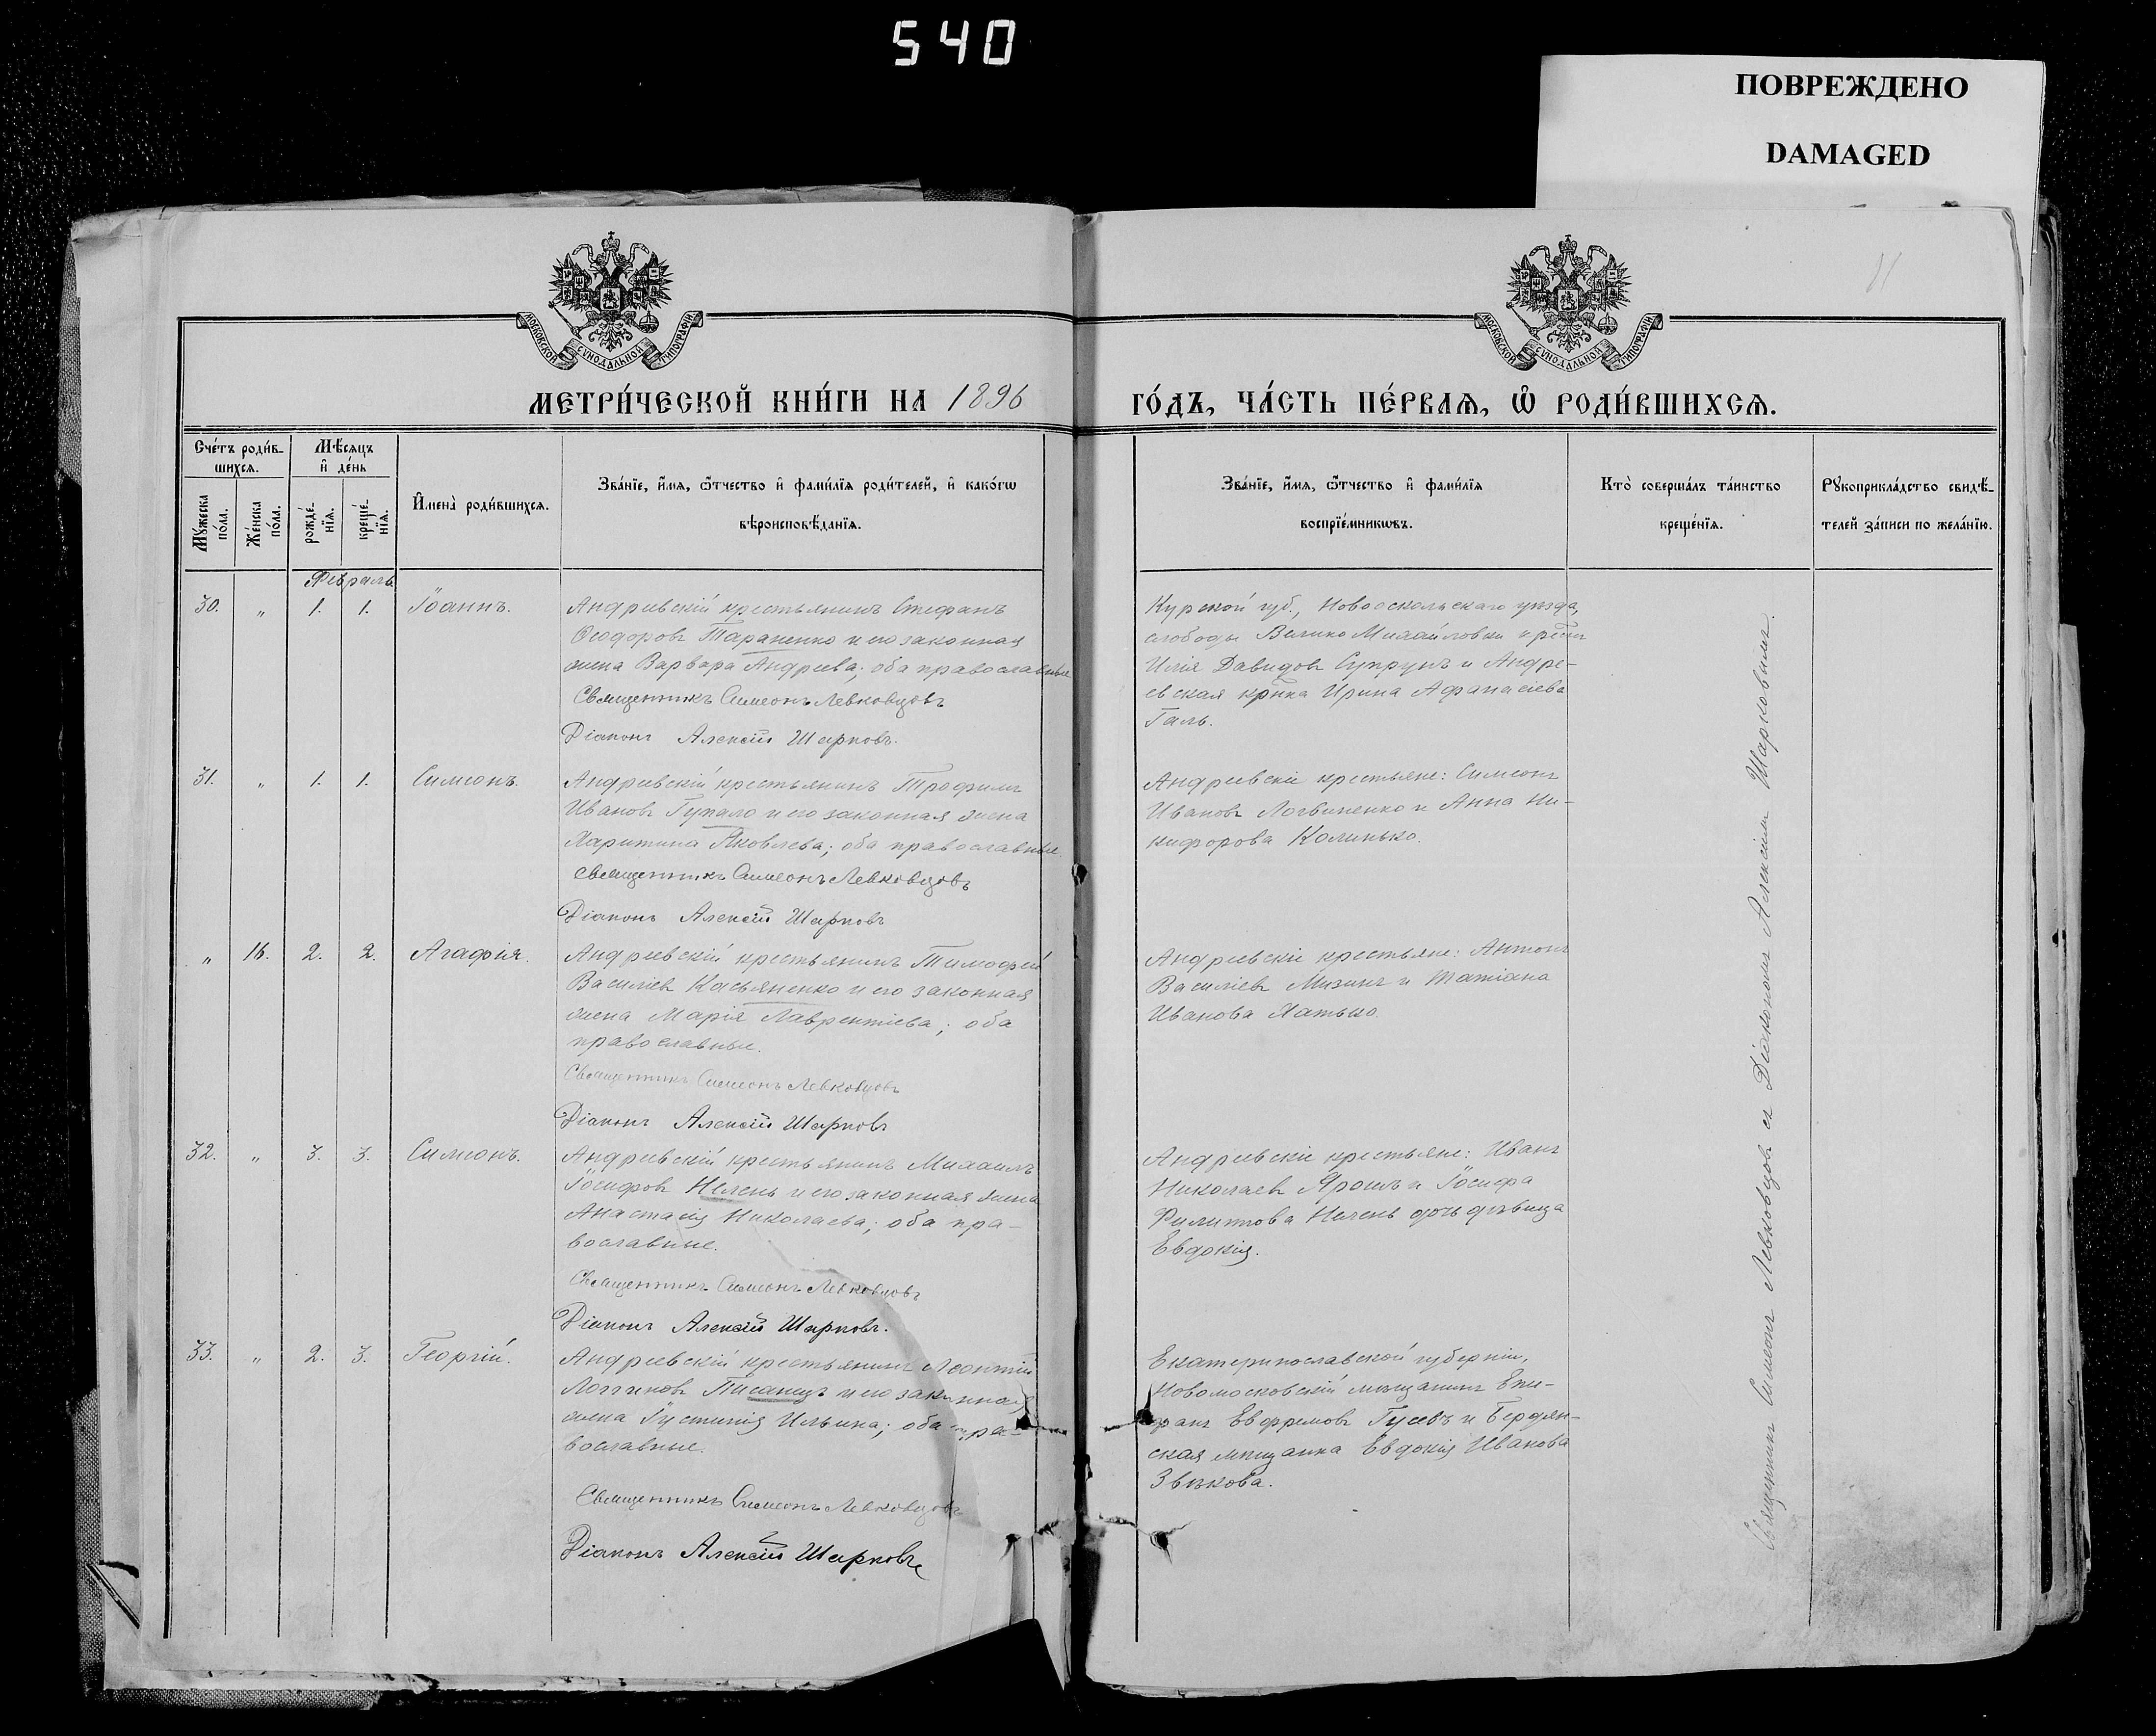 540
ПОВРЕЖДЕНО
DAMAGED
11
МОСКОВСКОЙ СѴНОДАЛЬНОЙ ТИПОГРАФІИ
МОСКОВСКОЙ СѴНОДАЛЬНОЙ ТИПОГРАФІИ
МЕТРИ́ЧЕСКОЙ КНИ́ГИ НА 1896
ГО́ДЪ, ЧА́СТЬ ПЕ́РВАѦ, Ѡ҆ РОДИ́ВШИХСѦ.
Сче́тъ роди́в-
шихсѧ.
Мѣ́сѧцъ
и҆ де́нь
Мꙋ́жеска
по́ла.
Же́нска
по́ла.
рожде́-
нїѧ.
креще́-
нїѧ.
И҆мена̀ роди́вшихсѧ.
Зва́нїе, и҆́мѧ, ѻ҆́тчество и҆ фами́лїѧ роди́телей, и҆ како́гѡ
вѣроисповѣ́данїѧ.
Зва́нїе, и҆́мѧ, ѻ҆́тчество и҆ фами́лїѧ
воспрїе́мникѡвъ.
Кто̀ соверша́лъ та́инство
креще́нїѧ.
Рꙋкоприкла́дство свидѣ́-
телей за́писи по жела́нїю.
Февраль.
30. „ 1. 1. Іоаннъ.
Андреевскій крестьянинъ Стефанъ
Ѳеодоровъ Тараненко и его законная
жена Варвара Андреева; оба православные
Священникъ Симеонъ Левковцовъ
Діаконъ Алексій Шарковъ.
Курской губ., Новооскольскаго уѣзда,
слободы Велико Михайловки кр-нъ
Илія Давидовъ Супрунъ и Андре-
евская кр-нка Ирина Афанасіева
Галь.
31. „ 1. 1. Симеонъ.
Андреевскій крестьянинъ Трофимъ
Ивановъ Гупало и его законная жена
Харитина Яковлева; оба православные.
Священникъ Симеонъ Левковцовъ
Діаконъ Алексій Шарковъ
Андреевскіе крестьяне: Симеонъ
Ивановъ Логвиненко и Анна Ни-
кифорова Колинько.
„ 16. 2. 2. Агафія.
Андреевскій крестьянинъ Тимофей
Василіевъ Касьяненко и его законная
жена Марія Лаврентіева; оба
православные.
Священникъ Симеонъ Левковцовъ
Діаконъ Алексій Шарковъ
Андреевскіе крестьяне: Антонъ
Василіевъ Мизинъ и Татіана
Иванова Хатько.
32. „ 3. 3. Симеонъ.
Андреевскій крестьянинъ Михаилъ
Іосифовъ Нелень и его законная жена
Анастасія Николаева; оба пра-
вославные.
Священникъ Симеонъ Левковцовъ
Діаконъ Алексій Шарковъ.
Андреевскіе крестьяне: Иванъ
Николаевъ Ярошъ и Іосифа
Филиппова Нелень дочь дѣвица
Евдокія.
33. „ 2. 3. Георгій.
Андреевскій крестьянинъ Леонтій
Логгиновъ Писанецъ и его законная
жена Іустинія Ильина; оба пра-
вославные.
Священникъ Симеонъ Левковцовъ
Діаконъ Алексій Шарковъ
Екатеринославской губерніи,
Новомосковскій мѣщанинъ Епи-
фанъ Евфремовъ Гусевъ и Бердян-
ская мѣщанка Евдокія Иванова
Звѣкова.
Священникъ Симеонъ Левковцовъ съ Діакономъ Алексіемъ Шарковымъ.